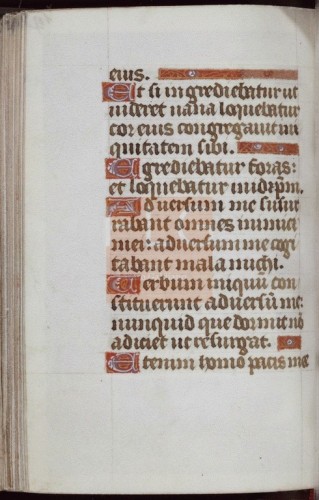 eius.
Et si ingrediebatur ut
uideret uana loquebatur
cor eius congregauit ini
quitatem sibi.
Egrediebatur foras:
et loquebatur in idip̄m.
Aduersum me susur
rabant omnes inimici
mei: aduersum me cogi
tabant mala michi.
Uerbum iniquū con
stituerunt aduersū me:
nunquid que dormit nō
adiciet ut resurgat.
Etenim homo pacis mee